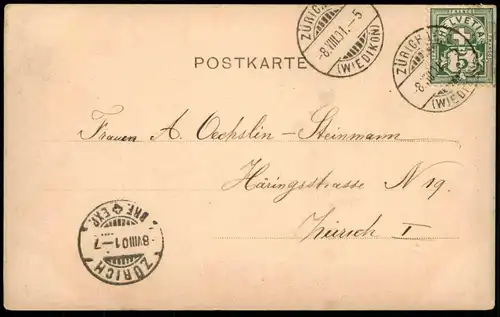 ZÜRICH
-8.VIII.01.-5
(WIEDIKON)
HELVETIA
5
ZÜRICH
-8.VIII.01
(WIEDIKON)
POSTKARTE
Frauen A. Oechslin-Steinmann
Häringsstrasse N 19.
Zürich I
BRF. EXP.
-8.VIII.01-7
ZÜRICH